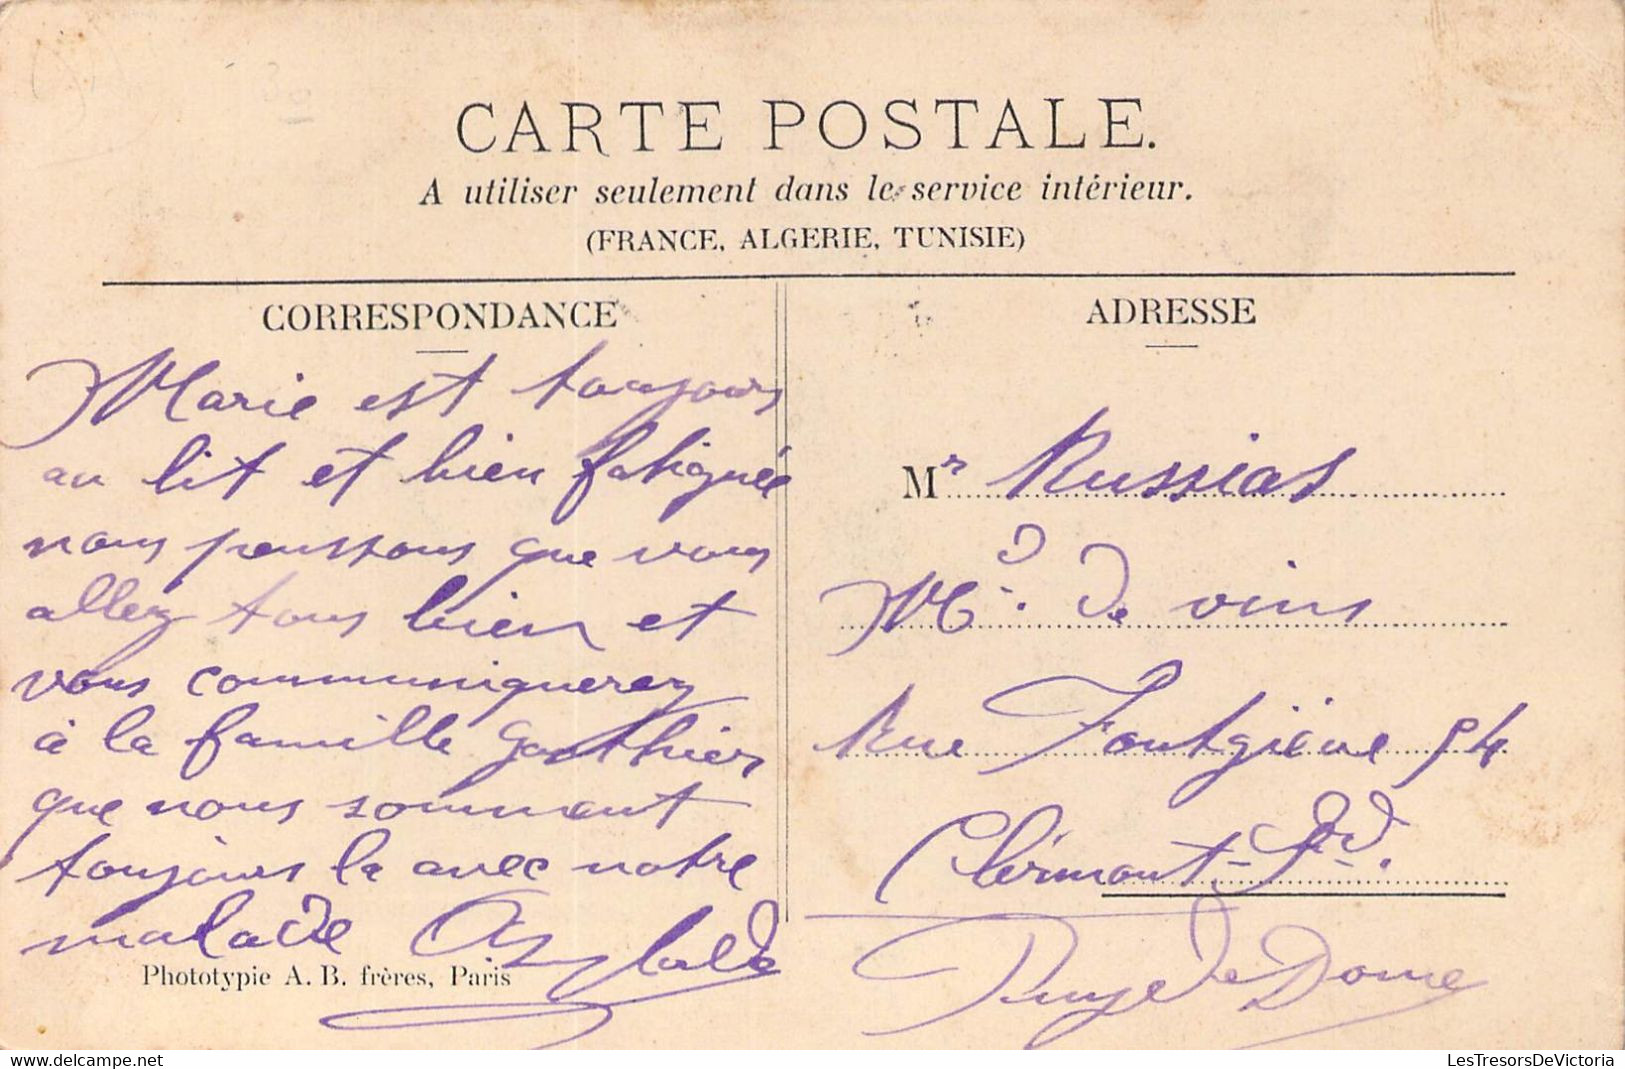 CARTE POSTALE.
A utiliser seulement dans le service intérieur.
(FRANCE, ALGERIE, TUNISIE)
CORRESPONDANCE
Marie est toujours
au lit et bien fatiguée
nous penssons que vous
allez tous bien et
vous communiquerez
à la famille Gauthier
que nous somment
toujours la avec notre
malade Anglade
Phototypie A. B. frères, Paris
ADRESSE
Mr Russias
Md. de vins
Rue Fontgiève 54
Clérmont-Fd.
Puy de Dome
LesTresorsDeVictoria